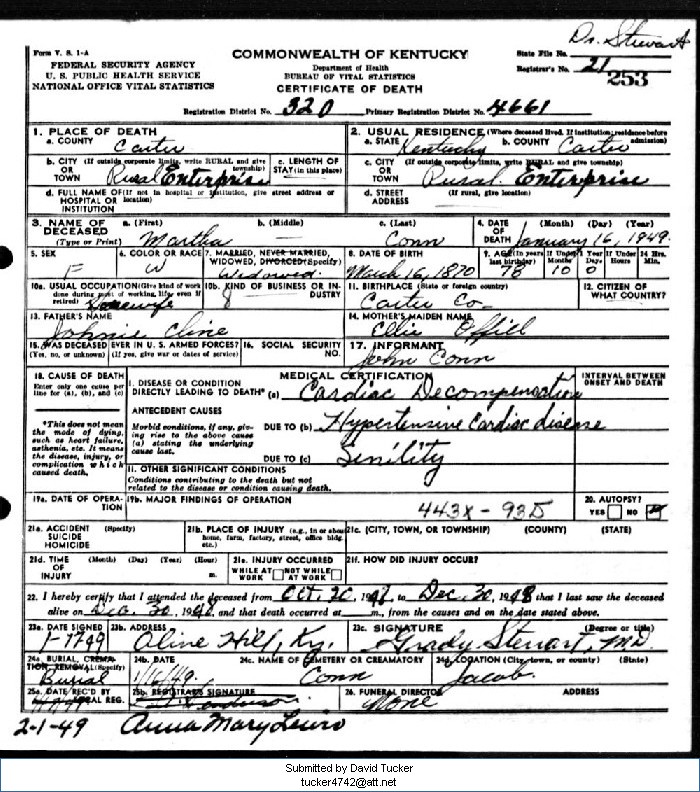 Dr. Stewart
Form V. S. 1-A
FEDERAL SECURITY AGENCY
U. S. PUBLIC HEALTH SERVICE
NATIONAL OFFICE VITAL STATISTICS
COMMONWEALTH OF KENTUCKY
Department of Health
BUREAU OF VITAL STATISTICS
CERTIFICATE OF DEATH
State File No.
Registrar's No. 21
253
Registration District No. 320 Primary Registration District No. 4661
1. PLACE OF DEATH
a. COUNTY Carter
2. USUAL RESIDENCE (Where deceased lived. If institution: residence before admission)
a. STATE Kentucky b. COUNTY Carter
b. CITY OR TOWN (If outside corporate limits, write RURAL and give township) Rural Enterprise
c. LENGTH OF STAY (in this place)
c. CITY OR TOWN (If outside corporate limits, write RURAL and give township) Rural Enterprise
d. FULL NAME OF HOSPITAL OR INSTITUTION (If not in hospital or institution, give street address or location)
d. STREET ADDRESS (If rural, give location)
3. NAME OF DECEASED (Type or Print)
a. (First) Martha b. (Middle) c. (Last) Conn
4. DATE OF DEATH (Month) (Day) (Year) January 16, 1949
5. SEX F
6. COLOR OR RACE W
7. MARRIED, NEVER MARRIED, WIDOWED, DIVORCED (Specify) Widowed
8. DATE OF BIRTH March 16, 1870
9. AGE (In years last birthday) 78 If Under 1 Year Months 10 Days 0 If Under 24 Hrs. Hours Min.
10a. USUAL OCCUPATION (Give kind of work done during most of working life, even if retired) Housewife
10b. KIND OF BUSINESS OR INDUSTRY 8
11. BIRTHPLACE (State or foreign country) Carter Co.
12. CITIZEN OF WHAT COUNTRY?
13. FATHER'S NAME Johnie Cline
14. MOTHER'S MAIDEN NAME
15. WAS DECEASED EVER IN U. S. ARMED FORCES? (Yes, no, or unknown) (If yes, give war or dates of service)
16. SOCIAL SECURITY NO.
17. INFORMANT John Conn
18. CAUSE OF DEATH
Enter only one cause per line for (a), (b), and (c)
*This does not mean the mode of dying, such as heart failure, asthenia, etc. It means the disease, injury, or complication which caused death.
MEDICAL CERTIFICATION
INTERVAL BETWEEN ONSET AND DEATH
I. DISEASE OR CONDITION DIRECTLY LEADING TO DEATH* (a) Cardiac Decompensation
ANTECEDENT CAUSES
Morbid conditions, if any, giving rise to the above cause (a) stating the underlying cause last.
DUE TO (b) Hypertensive Cardiac disease
DUE TO (c) Senility
II. OTHER SIGNIFICANT CONDITIONS
Conditions contributing to the death but not related to the disease or condition causing death.
19a. DATE OF OPERATION
19b. MAJOR FINDINGS OF OPERATION
443X - 93D
20. AUTOPSY? YES NO
21a. ACCIDENT SUICIDE HOMICIDE (Specify)
21b. PLACE OF INJURY (e.g., in or about home, farm, factory, street, office bldg. etc.)
21c. (CITY, TOWN, OR TOWNSHIP) (COUNTY) (STATE)
21d. TIME OF INJURY (Month) (Day) (Year) (Hour) m.
21e. INJURY OCCURRED WHILE AT WORK NOT WHILE AT WORK
21f. HOW DID INJURY OCCUR?
22. I hereby certify that I attended the deceased from Oct. 20, 1947, to Dec. 30, 1948 that I last saw the deceased
alive on Dec. 30, 1948, and that death occurred at m., from the causes and on the date stated above.
23a. DATE SIGNED
23b. ADDRESS Olive Hill, Ky.
23c. SIGNATURE (Degree or title) Grady Stewart, M.D.
24a. BURIAL, CREMATION, REMOVAL (Specify) Burial
24b. DATE 1/16/49
24c. NAME OF CEMETERY OR CREAMATORY Conn
24d. LOCATION (City, town, or county) (State) Jacob
25a. DATE REC'D BY LOCAL REG.
25b. REGISTRAR'S SIGNATURE
26. FUNERAL DIRECTOR ADDRESS None
2-1-49 Anna Mary Lewis
Submitted by David Tucker
tucker4742@att.net